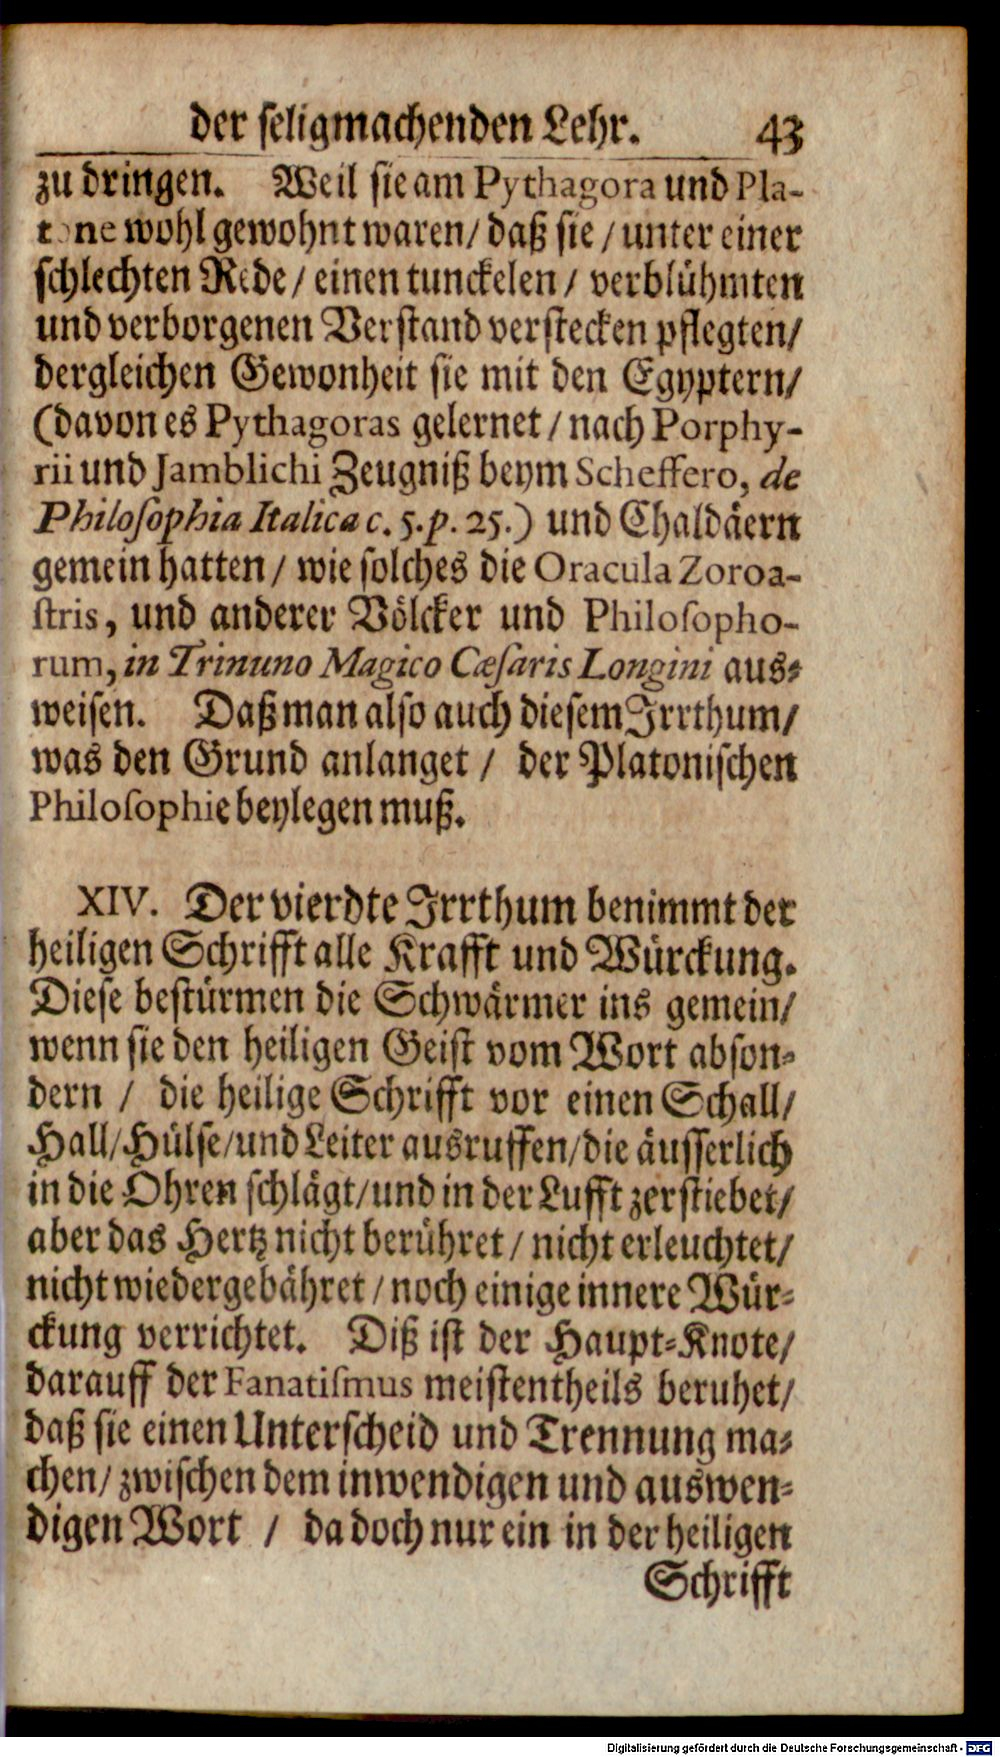 der ſeligmachenden Lehr. 43
zu dringen. Weil ſie am Pythagora und Pla-
tone wohl gewohnt waren/ daß ſie / unter einer
ſchlechten Rede / einen tunckelen / verblühmten
und verborgenen Verſtand verſtecken pflegten/
dergleichen Gewonheit ſie mit den Egyptern/
(davon es Pythagoras gelernet / nach Porphy-
rii und Jamblichi Zeugniß beym Scheffero, de
Philoſophia Italica c. 5. p. 25.) und Chaldäern
gemein hatten / wie ſolches die Oracula Zoroa-
ſtris, und anderer Völcker und Philoſopho-
rum, in Trinuno Magico Cæſaris Longini aus-
weiſen. Daß man alſo auch dieſem Irrthum/
was den Grund anlanget / der Platoniſchen
Philoſophie beylegen muß.
XIV. Der vierdte Irrthum benimmt der
heiligen Schrifft alle Krafft und Würckung.
Dieſe beſtürmen die Schwärmer ins gemein/
wenn ſie den heiligen Geiſt vom Wort abſon-
dern / die heilige Schrifft vor einen Schall/
Hall/ Hülſe/ und Leiter ausruffen/ die äuſſerlich
in die Ohren ſchlägt/ und in der Lufft zerſtiebet/
aber das Hertz nicht berühret / nicht erleuchtet/
nicht wiedergebähret / noch einige innere Wür-
ckung verrichtet. Diß iſt der Haupt-Knote/
darauff der Fanatiſmus meiſtentheils beruhet/
daß ſie einen Unterſcheid und Trennung ma-
chen/ zwiſchen dem inwendigen und auswen-
digen Wort / da doch nur ein in der heiligen
Schrifft
Digitalisierung gefördert durch die Deutsche Forschungsgemeinschaft - DFG